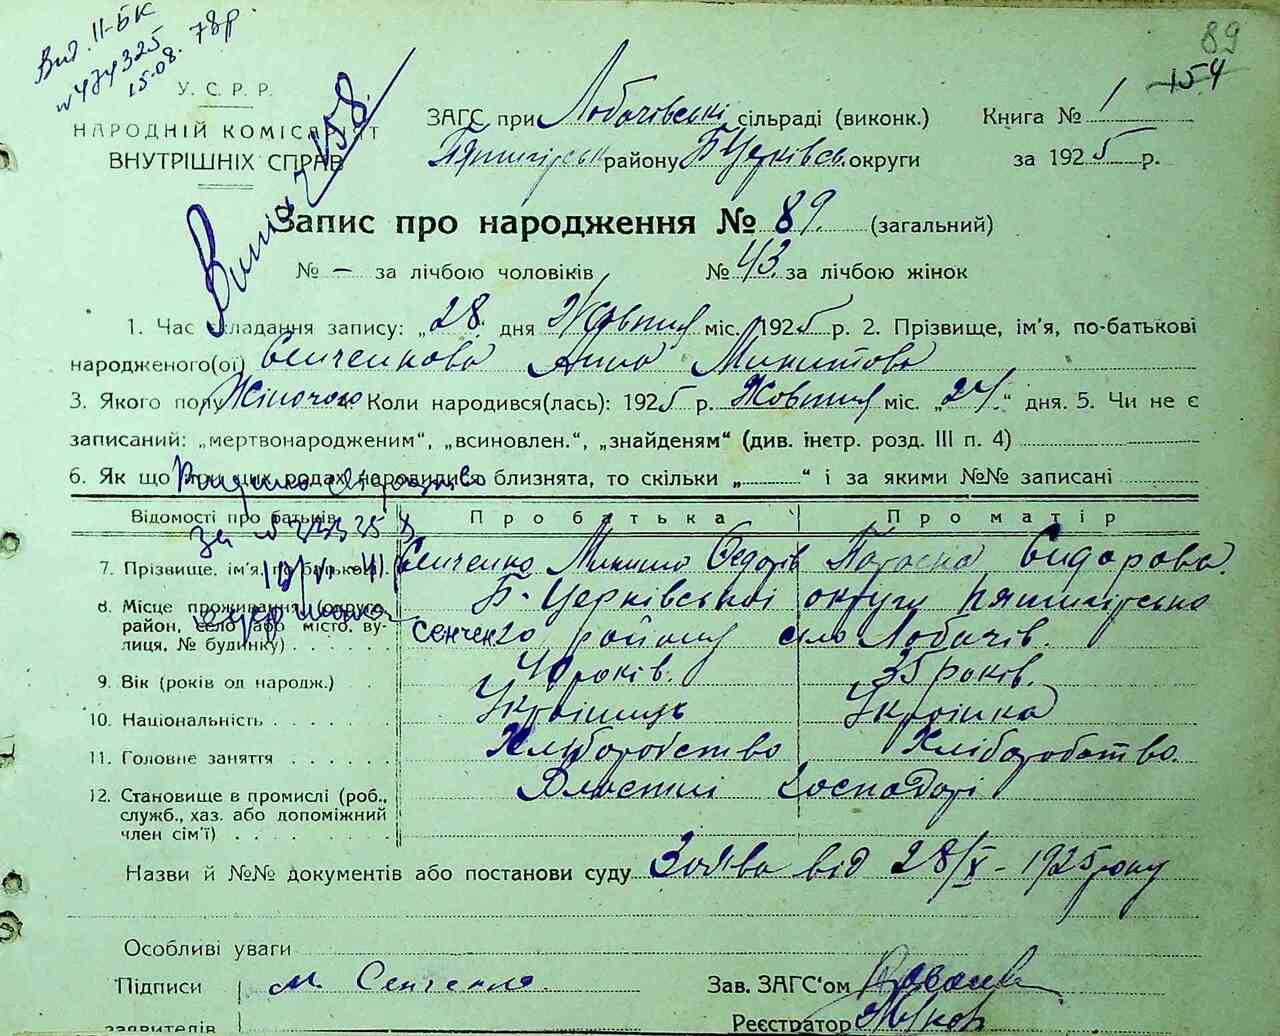 Вид. II-БК
№ 474325
15.08. 78р.
89
154
У. С. Р. Р.
НАРОДНІЙ КОМІСАРІЯТ
ВНУТРІШНІХ СПРАВ
ЗАГС при Лобачівські сільраді (виконк.) Книга № 1
Пятигірськ району Б Церківсь. округи за 1925 р.
Запис про народження № 89. (загальний)
№ — за лічбою чоловіків № 43. за лічбою жінок
1. Час складання запису: „28“ дня Жовтня міс. 1925 р. 2. Прізвище, ім'я, по-батькові
народженого(ої) Сенченкова Анна Микитова
3. Якого полу Жіночого 4. Коли народився(лась): 1925 р. Жовтня міс. „24.“ дня. 5. Чи не є
записаний: „мертвонародженим“, „всиновлен.“, „знайденям“ (див. інстр. розд. III п. 4)
6. Як що при цих родах народилися близнята, то скільки „ “ і за якими №№ записані
Відомості про батьків Про батька Про матір
7. Прізвище, ім'я, по батькові Сенченко Микита Федорів Параска Сидорова.
8. Місце проживання (округа, Б-Церківської округи Пятигірсько
район, село або місто, вулиця, № будинку) сенченко району село Лобачів.
9. Вік (років од народж.) 40 років. 35 років.
10. Національність Українець Українка
11. Головне заняття Хліборобство Хліборобство.
12. Становище в промислі (роб., Власнім господарі
служб., хаз. або допоміжний
член сім'ї)
Назви й №№ документів або постанови суду Заява від 28/X - 1925 року
Особливі уваги
Підписи м Сенченко Зав. ЗАГС'ом
заявителів Реєстратор